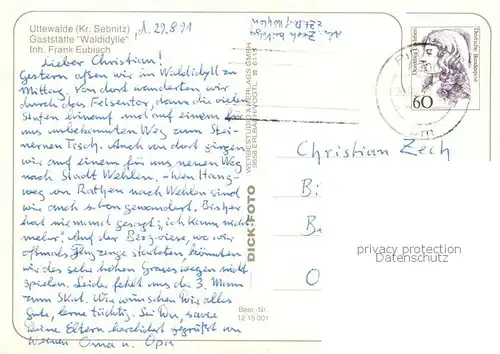 Uttewalde (Kr. Sebnitz)
Gaststätte "Waldidylle"
Inh. Frank Eubisch
d. 29.8.91
Lieber Christian!
Gestern aßen wir im Waldidyll zu
Mittag. Von dort wanderten wir
durch das Felsentor, dann die vielen
Stufen hinauf und auf einem für
uns unbekannten Weg zum Stei-
nernen Tisch. Auch von dort gingen
wir auf einem für uns neuen Weg
nach Stadt Wehlen. Den Hang-
weg von Rathen nach Wehlen sind
wir auch schon gewandert. Bisher
hat niemand gesagt: „ich kann nicht
mehr." Auf der Bergwiese, wo wir
oftmals Flugzeuge starteten, konnten
wir des sehr hohen Grases wegen nicht
spielen. Leider fehlt uns der 3. Mann
zum Skat. Wir wünschen Dir alles
Gute, lerne tüchtig. Sei Du, sowie
Deine Eltern herzlichst gegrüßt von
Deinen Oma u. Opa
DICK-FOTO
WERBESTUDIO & VERLAGS GMBH
9658 ERLBACH/VOGTL. ☎ 6115
Best.-Nr.
12 15 001
Deutsche Bundespost
60
Christian Zech
Bi
B
O
privacy protection
Datenschutz